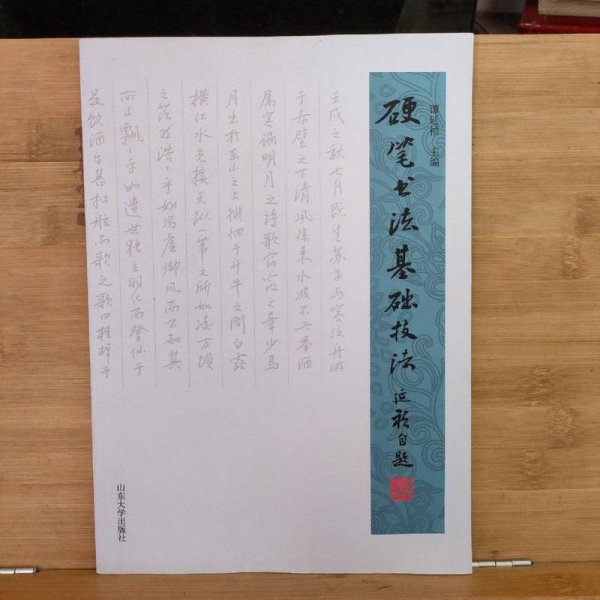 谭延 主编
硬笔书法基础技法
延 自题
壬戌之秋七月既望苏子与客泛舟游
于赤壁之下清风徐来水波不兴举酒
属客诵明月之诗歌窈窕之章少焉
月出于东山之上徘徊于斗牛之间白露
横江水光接天纵一苇之所如凌万顷
之茫然浩々乎如冯虚御风而不知其
所止飘々乎如遗世独立羽化而登仙于
是饮酒乐甚扣舷而歌之歌曰桂棹兮
山东大学出版社